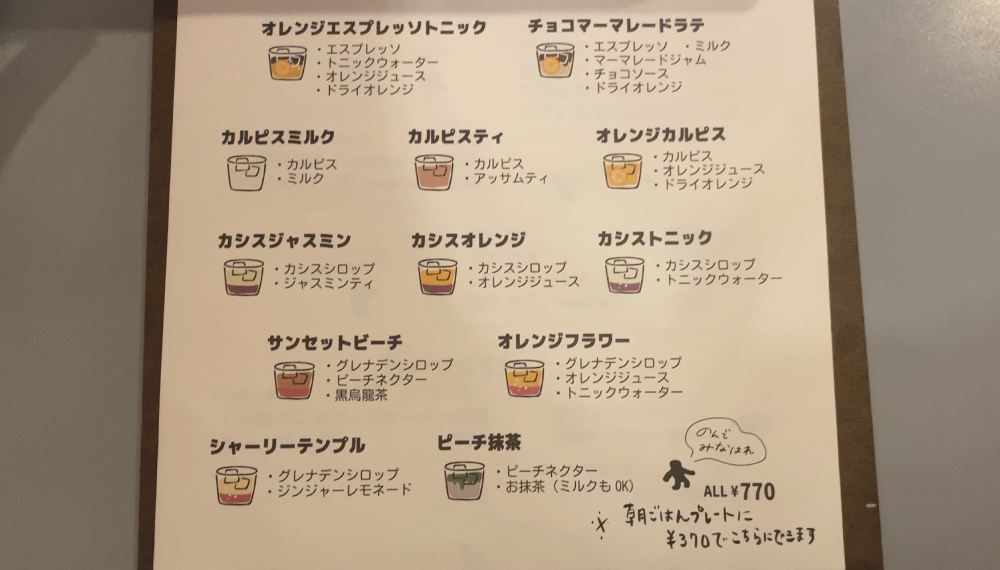 オレンジエスプレッソトニック
・エスプレッソ
・トニックウォーター
・オレンジジュース
・ドライオレンジ
チョコマーマレードラテ
・エスプレッソ ・ミルク
・マーマレードジャム
・チョコソース
・ドライオレンジ
カルピスミルク
・カルピス
・ミルク
カルピスティ
・カルピス
・アッサムティ
オレンジカルピス
・カルピス
・オレンジジュース
・ドライオレンジ
カシスジャスミン
・カシスシロップ
・ジャスミンティ
カシスオレンジ
・カシスシロップ
・オレンジジュース
カシストニック
・カシスシロップ
・トニックウォーター
サンセットビーチ
・グレナデンシロップ
・ピーチネクター
・黒烏龍茶
オレンジフラワー
・グレナデンシロップ
・オレンジジュース
・トニックウォーター
シャーリーテンプル
・グレナデンシロップ
・ジンジャーレモネード
ピーチ抹茶
・ピーチネクター
・お抹茶（ミルクもOK）
のんで
みなはれ
ALL ¥770
朝ごはんプレートに
¥370でこちらにできます